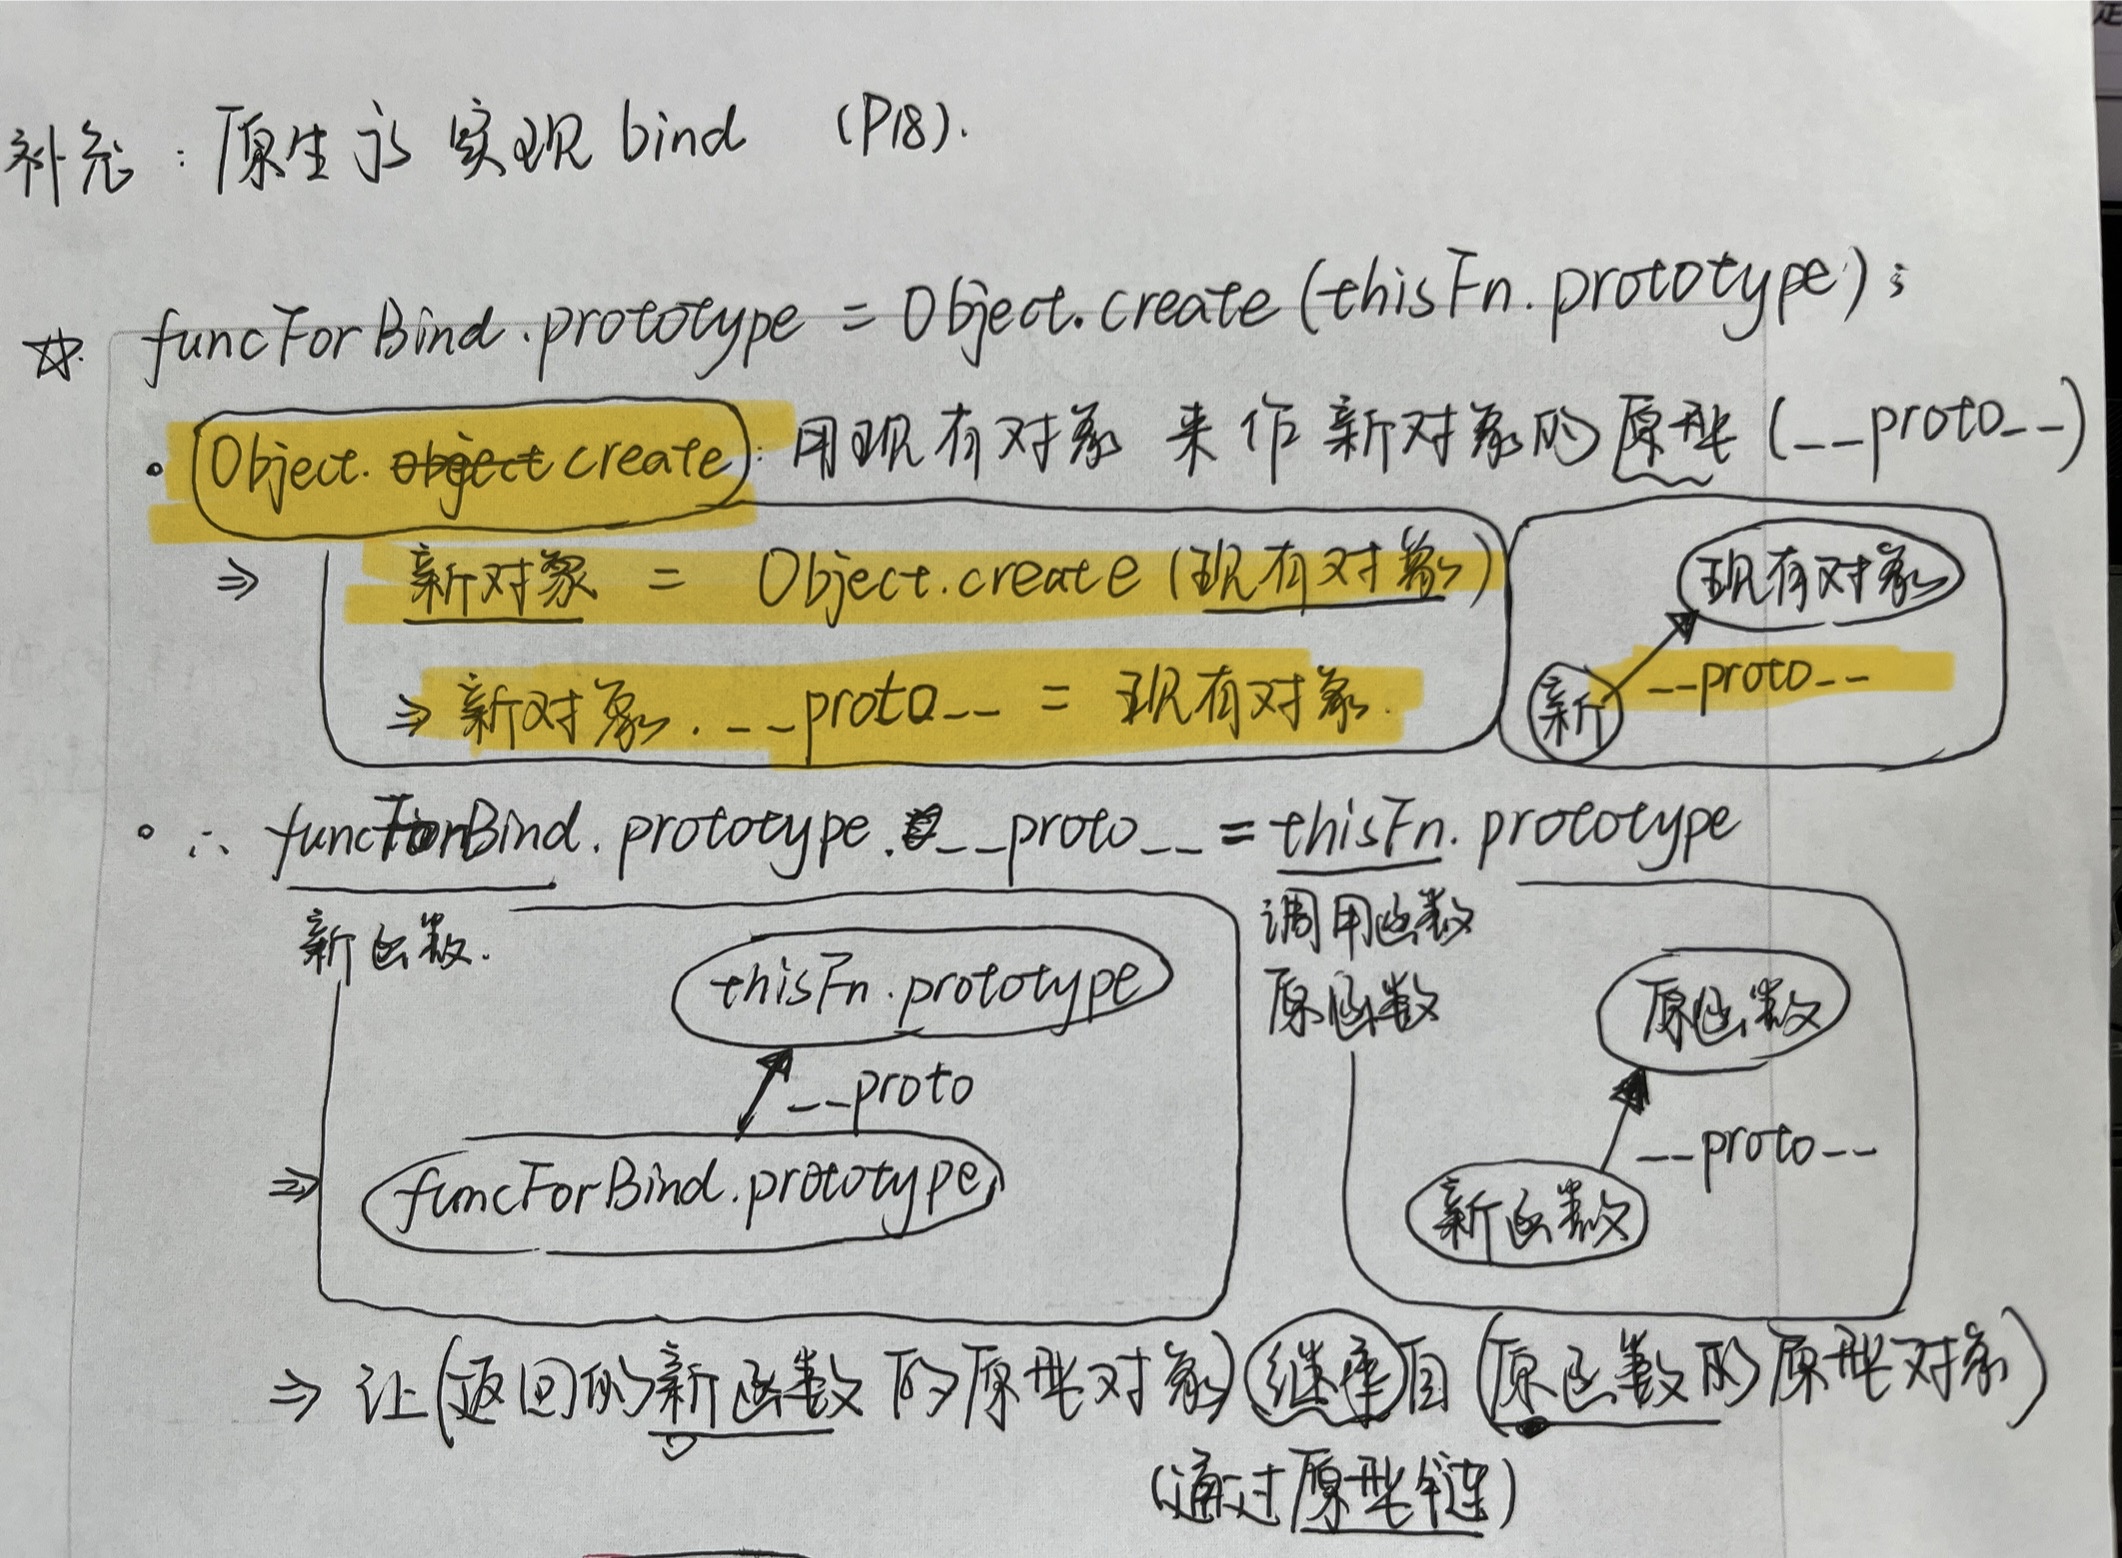 补充：原生js实现bind (P18).
☆. funcForBind.prototype = Object.create(thisFn.prototype);
• Object.create: 用现有对象 来作新对象的原型(__proto__)
⇒ 新对象 = Object.create(现有对象)
⇒ 新对象.__proto__ = 现有对象.
现有对象
__proto__
新
• ∴ funcForBind.prototype.__proto__ = thisFn.prototype
新函数.
调用函数
原函数
thisFn.prototype
__proto
⇒ funcForBind.prototype
原函数
__proto__
新函数
⇒ 让(返回的新函数的原型对象)继承自(原函数的原型对象)
(通过原型链)